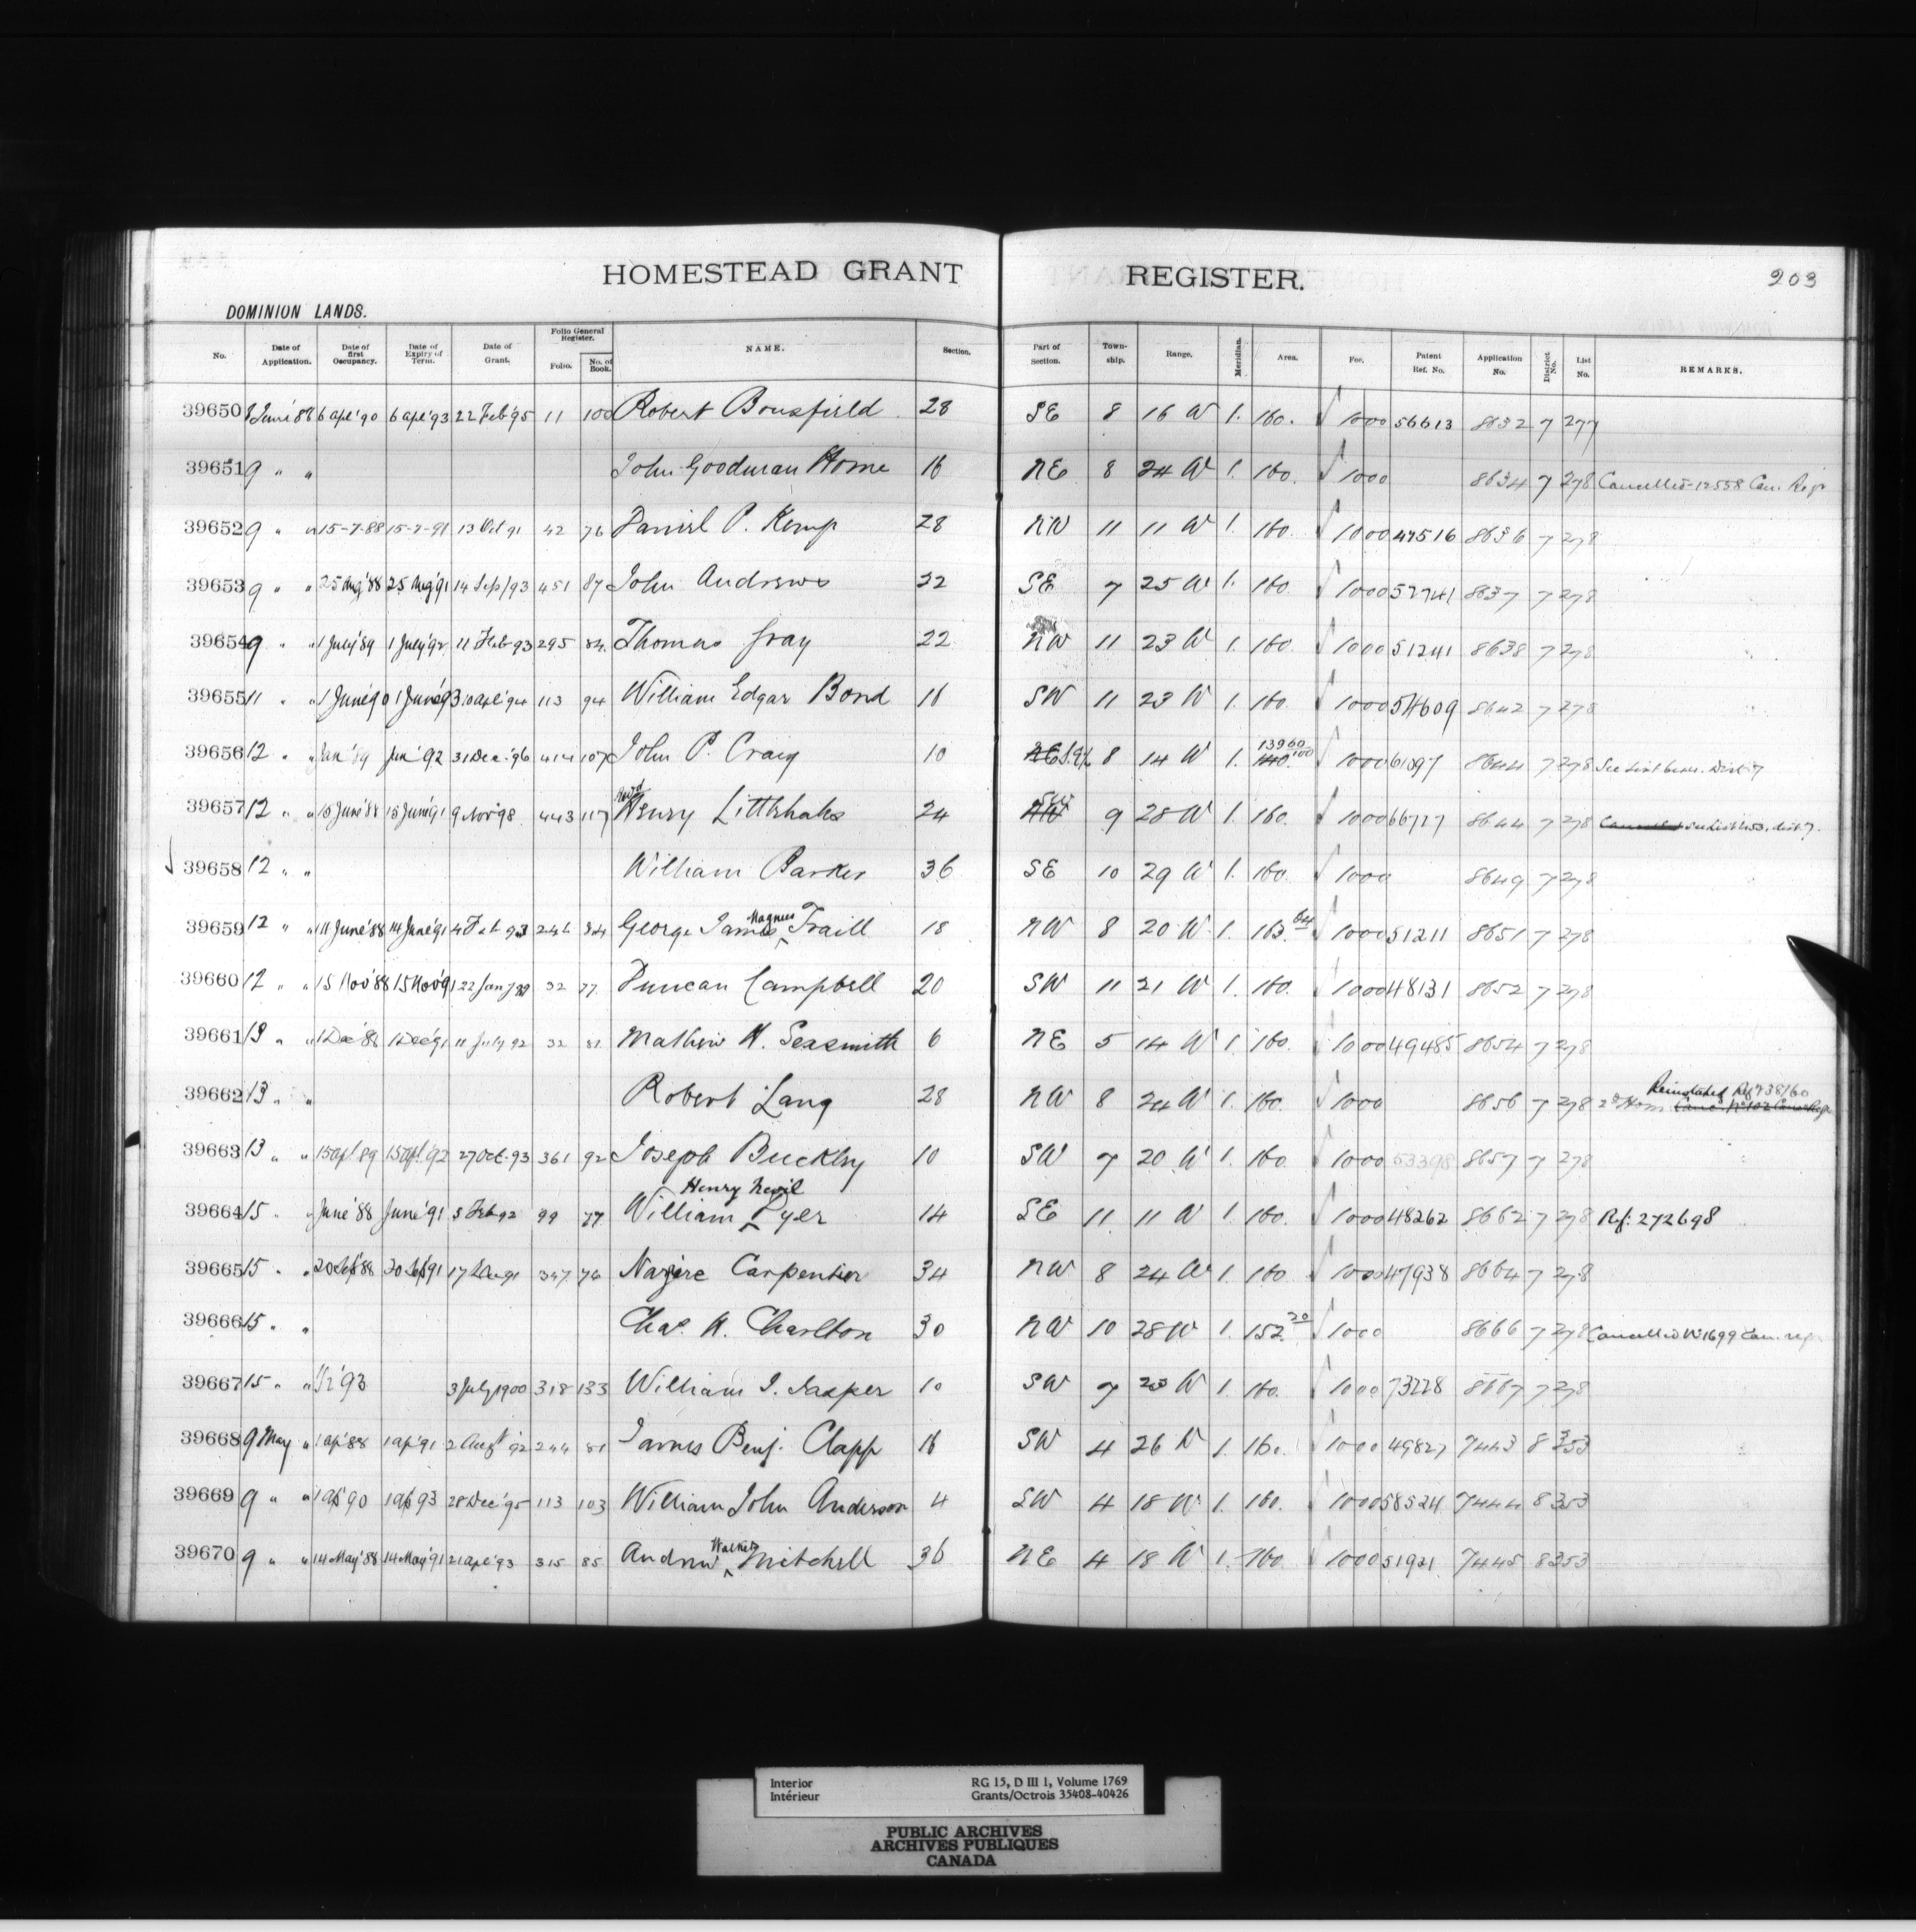 HOMESTEAD GRANT REGISTER. 203
DOMINION LANDS.
No. Date of Application. Date of first Occupancy. Date of Expiry of Term. Date of Grant. Folio General Register. Folio. No. of Book. NAME. Section. Part of Section. Township. Range. Meridian. Area. Fee. Patent Ref. No. Application No. District No. List No. REMARKS.
39650 8 June '88 6 apl '90 6 apl '93 22 Feb '95 11 100 Robert Bousfield 28 SE 8 16 W 1. 160. 10 00 56613 8632 7 277
39651 9 " " John Goodman Horne 16 NE 8 24 W 1. 160. 10 00 8634 7 278 Cancelled - 12558 Can. Regr
39652 9 " " 15-7-88 15-7-91 13 Oct 91 42 76 Daniel P. Kemp 28 NW 11 11 W 1. 160. 10 00 47516 8636 7 278
39653 9 " " 25 Aug '88 25 Aug '91 14 Sep/93 451 87 John Andrews 32 SE 7 25 W 1. 160. 10 00 52741 8637 7 278
39654 9 " " 1 July '89 1 July '92 11 Feb 93 295 84 Thomas Gray 22 NW 11 23 W 1. 160. 10 00 51241 8638 7 278
39655 11 " " 1 June '90 1 June 93 10 apl '94 113 94 William Edgar Bond 16 SW 11 23 W 1. 160. 10 00 54609 8642 7 278
39656 12 " " Jun '89 Jun '92 31 Dec '96 414 107 John P. Craig 10 NE 8 14 W 1. 139 60 10 00 61097 8644 7 278
39657 12 " " 15 June '88 15 June '91 9 Nov '98 443 117 Henry Littlehales 24 NW 9 28 W 1. 160. 10 00 66717 8644 7 278 Cancelled
39658 12 " " William Parker 36 SE 10 29 W 1. 160. 10 00 8649 7 278
39659 12 " " 14 June '88 14 June '91 4 Feb 93 246 84 George James Magnus Traill 18 NW 8 20 W 1. 163. 64 10 00 51211 8651 7 278
39660 12 " " 15 Nov '88 15 Nov '91 22 Jany 32 77 Duncan Campbell 20 SW 11 21 W 1. 160. 10 00 48131 8652 7 278
39661 13 " " 1 Dec '88 1 Dec '91 11 July 92 32 81 Mathew H. Sexsmith 6 NE 5 14 W 1. 160. 10 00 49485 8654 7 278
39662 13 " " Robert Lang 28 NW 8 24 W 1. 160. 10 00 8656 7 278 2d Hom. Reinstated Ref 738160
39663 13 " " 15 Apl. 89 15 Apl. '92 27 Oct. 93 361 92 Joseph Buckley 10 SW 7 20 W 1. 160. 10 00 53398 8657 7 278
39664 15 " June '88 June '91 5 Feb 92 99 77 William Henry Nevil Pyer 14 SE 11 11 W 1. 160. 10 00 48262 8662 7 278 Ref: 272698
39665 15 " " 20 Sep '88 20 Sep '91 17 Dec 91 347 76 Narzire Carpentier 34 NW 8 24 W 1. 160 10 00 47938 8664 7 278
39666 15 " " Chas. H. Charlton 30 NW 10 28 W 1. 152 20 10 00 8666 7 278 Cancelled No 1699 Can. reg.
39667 15 " " '93 3 July 1900 318 133 William J. Jasper 10 SW 7 23 W 1. 160. 10 00 73228 8667 7 278
39668 9 May " 1 ap '88 1 ap '91 2 Augt '92 244 81 James Benj. Clapp 16 SW 4 26 W 1. 160. 10 00 49827 7443 8 353
39669 9 " " 1 ap '90 1 ap 93 28 Dec '95 113 103 William John Anderson 4 SW 4 18 W. 1. 160. 10 00 58524 7444 8 353
39670 9 " " 14 May '88 14 May '91 21 apl '93 315 85 Andrew Walker Mitchell 36 NE 4 18 W 1. 160. 10 00 51921 7445 8 353
Interior RG 15, D III 1, Volume 1769
Intérieur Grants/Octrois 35408-40426
PUBLIC ARCHIVES
ARCHIVES PUBLIQUES
CANADA